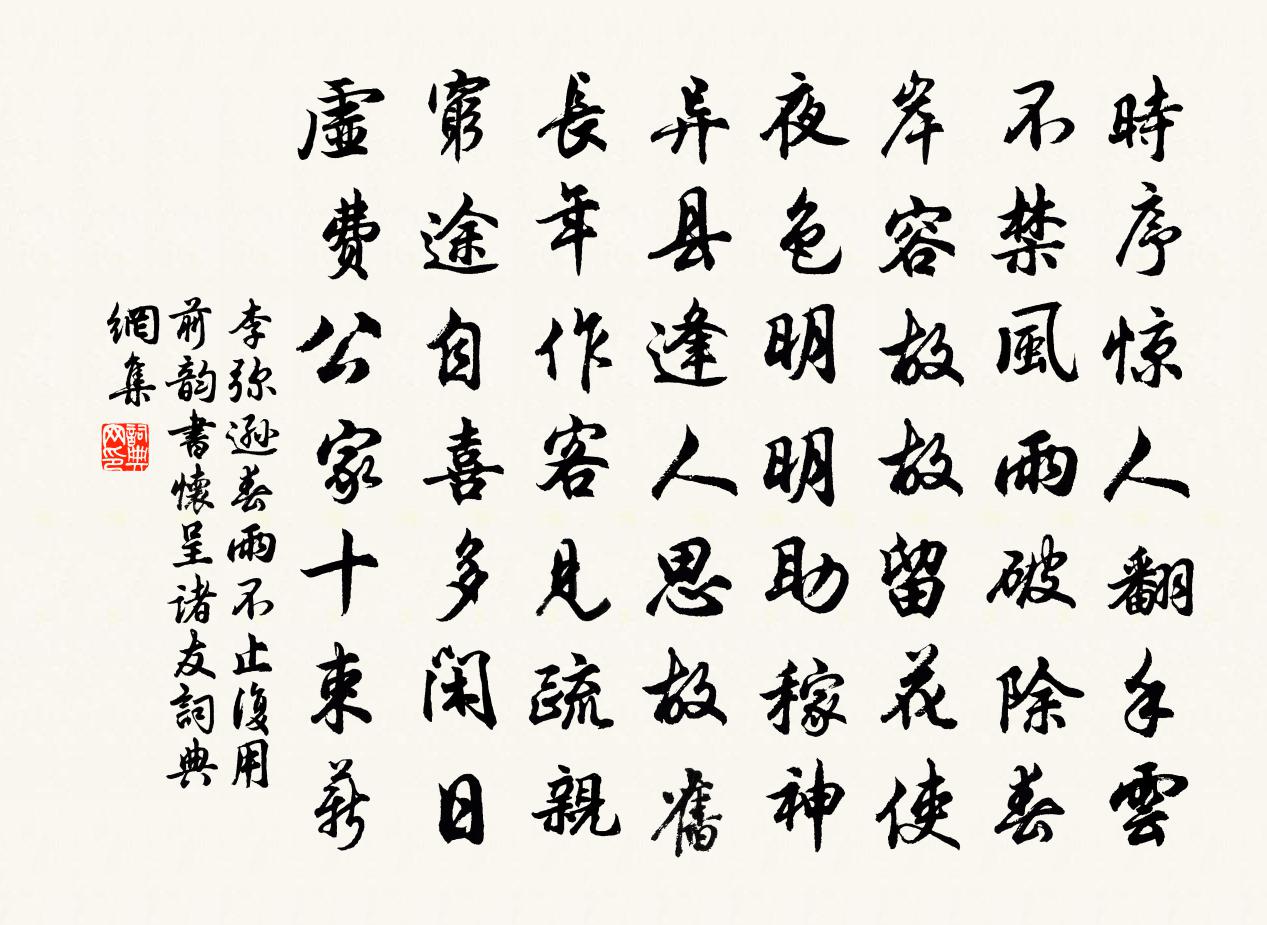 時序惊人翻手雲
不禁風雨破除春
岸容故故留花使
夜色明明助稼神
异县逢人思故舊
長年作客見疏親
窮途自喜多闲日
虛費公家十束薪
李弥遜春雨不止復用
前韵書懷呈诸友詞典
網集
詞典
网印